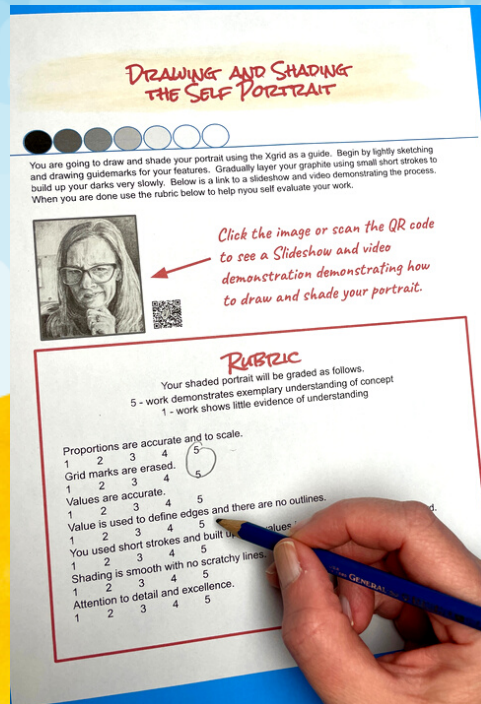 DRAWING AND SHADING
THE SELF PORTRAIT
You are going to draw and shade your portrait using the Xgrid as a guide. Begin by lightly sketching
and drawing guidemarks for your features. Gradually layer your graphite using small short strokes to
build up your darks very slowly. Below is a link to a slideshow and video demonstrating the process.
When you are done use the rubric below to help nyou self evaluate your work.
Click the image or scan the QR code
to see a Slideshow and video
demonstration demonstrating how
to draw and shade your portrait.
RUBRIC
Your shaded portrait will be graded as follows.
5 - work demonstrates exemplary understanding of concept
1 - work shows little evidence of understanding
Proportions are accurate and to scale.
1 2 3 4 5
Grid marks are erased.
1 2 3 4 5
Values are accurate.
1 2 3 4 5
Value is used to define edges and there are no outlines.
1 2 3 4 5
You used short strokes and built values
1 2 3 4 5
Shading is smooth with no scratchy lines.
1 2 3 4 5
Attention to detail and excellence.
1 2 3 4 5
GENERAL